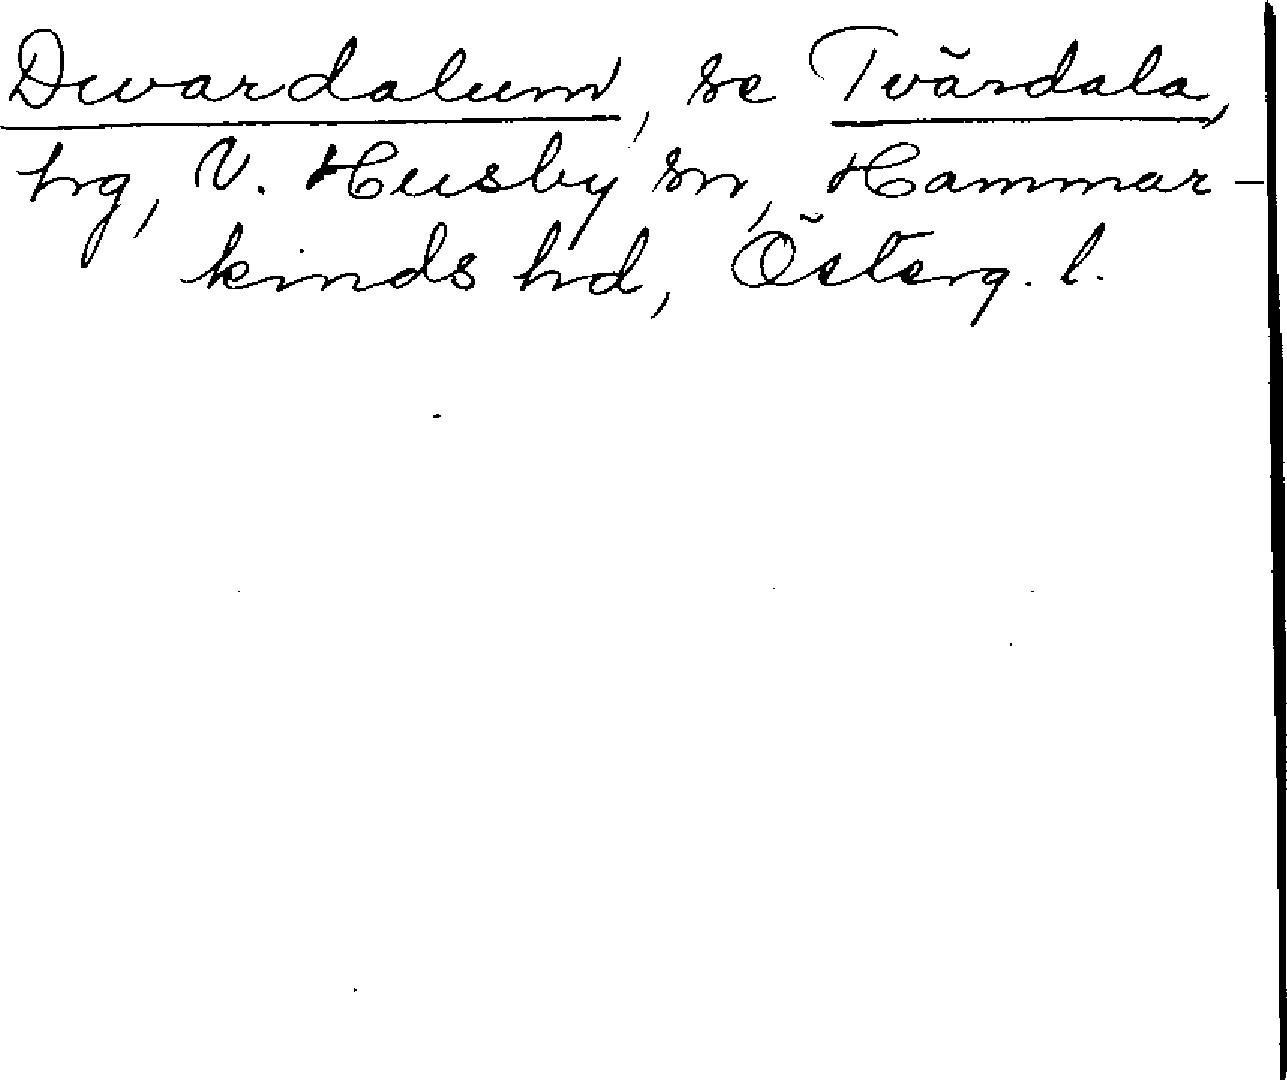 Dwardalum, se Tvärdala,
hg, V. Husby sn, Hammar-
kinds hd, Österg. l.